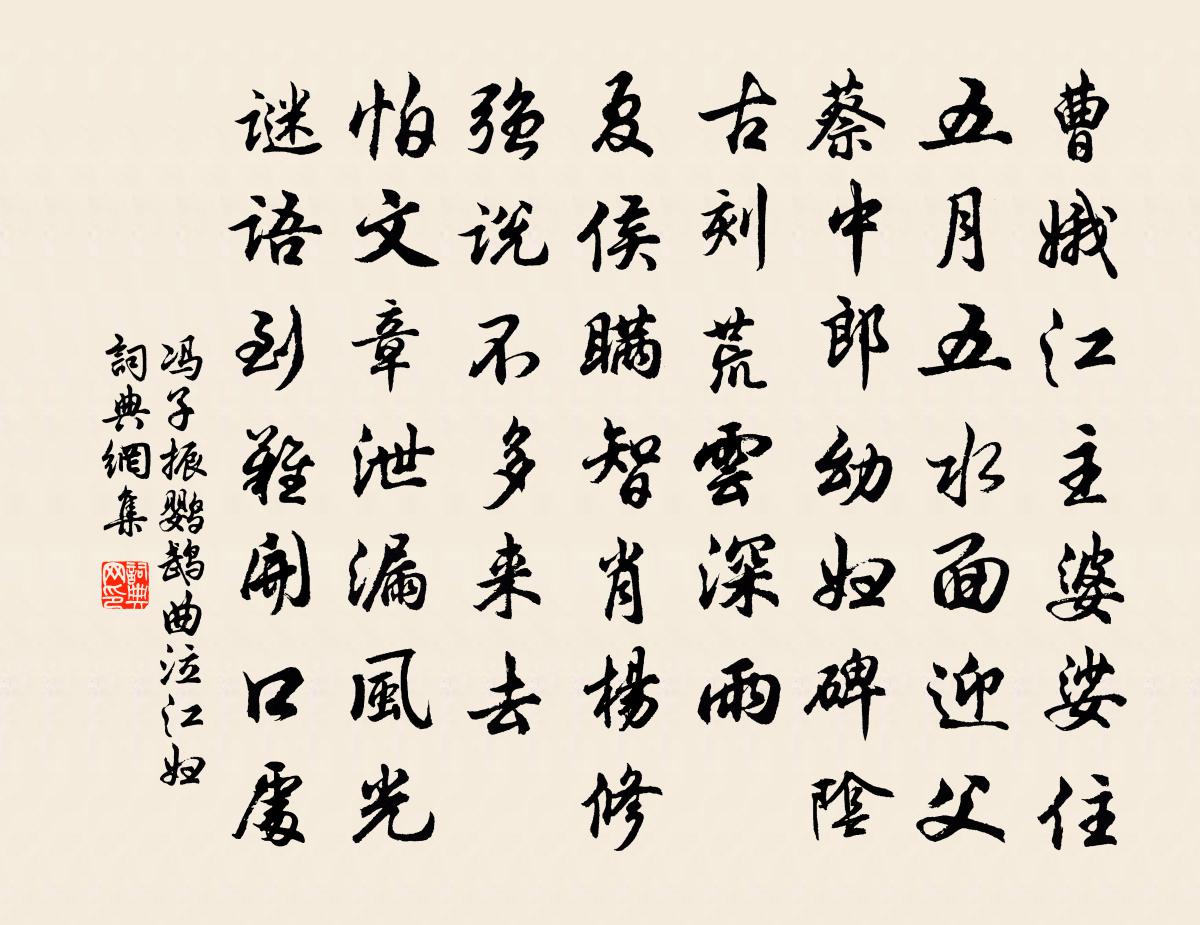 曹娥江主婆娑住
五月五水面迎父
蔡中郎幼妇碑陰
古刻荒雲深雨
夏侯瞒智肖楊修
强说不多来去
怕文章泄漏風光
谜语到难開口處
冯子振鹦鹉曲泣江妇
詞典網集
詞典网印